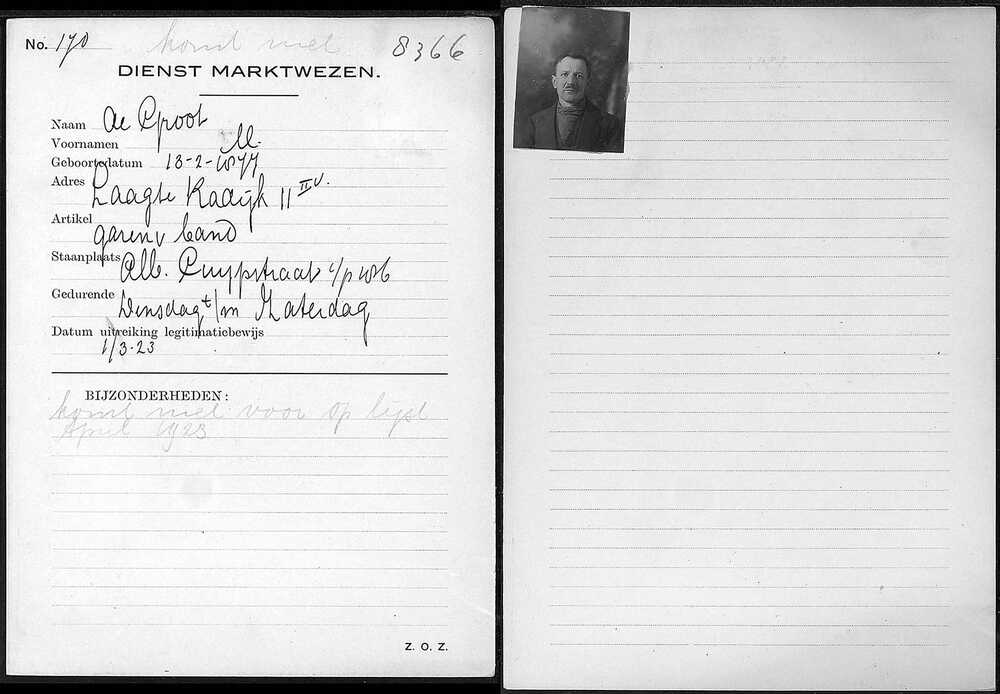 No. 170 komt niet 8366
DIENST MARKTWEZEN.
Naam de Groot
Voornamen M.
Geboortedatum 13-2-1877
Adres Laagte Kadijk 11 II v.
Artikel garen v band
Staanplaats Alb. Cuypstraat t/p 186
Gedurende Dinsdag t/m Zaterdag
Datum uitreiking legitimatiebewijs
1/3-23
BIJZONDERHEDEN:
komt niet voor op lijst
April 1923
Z. O. Z.